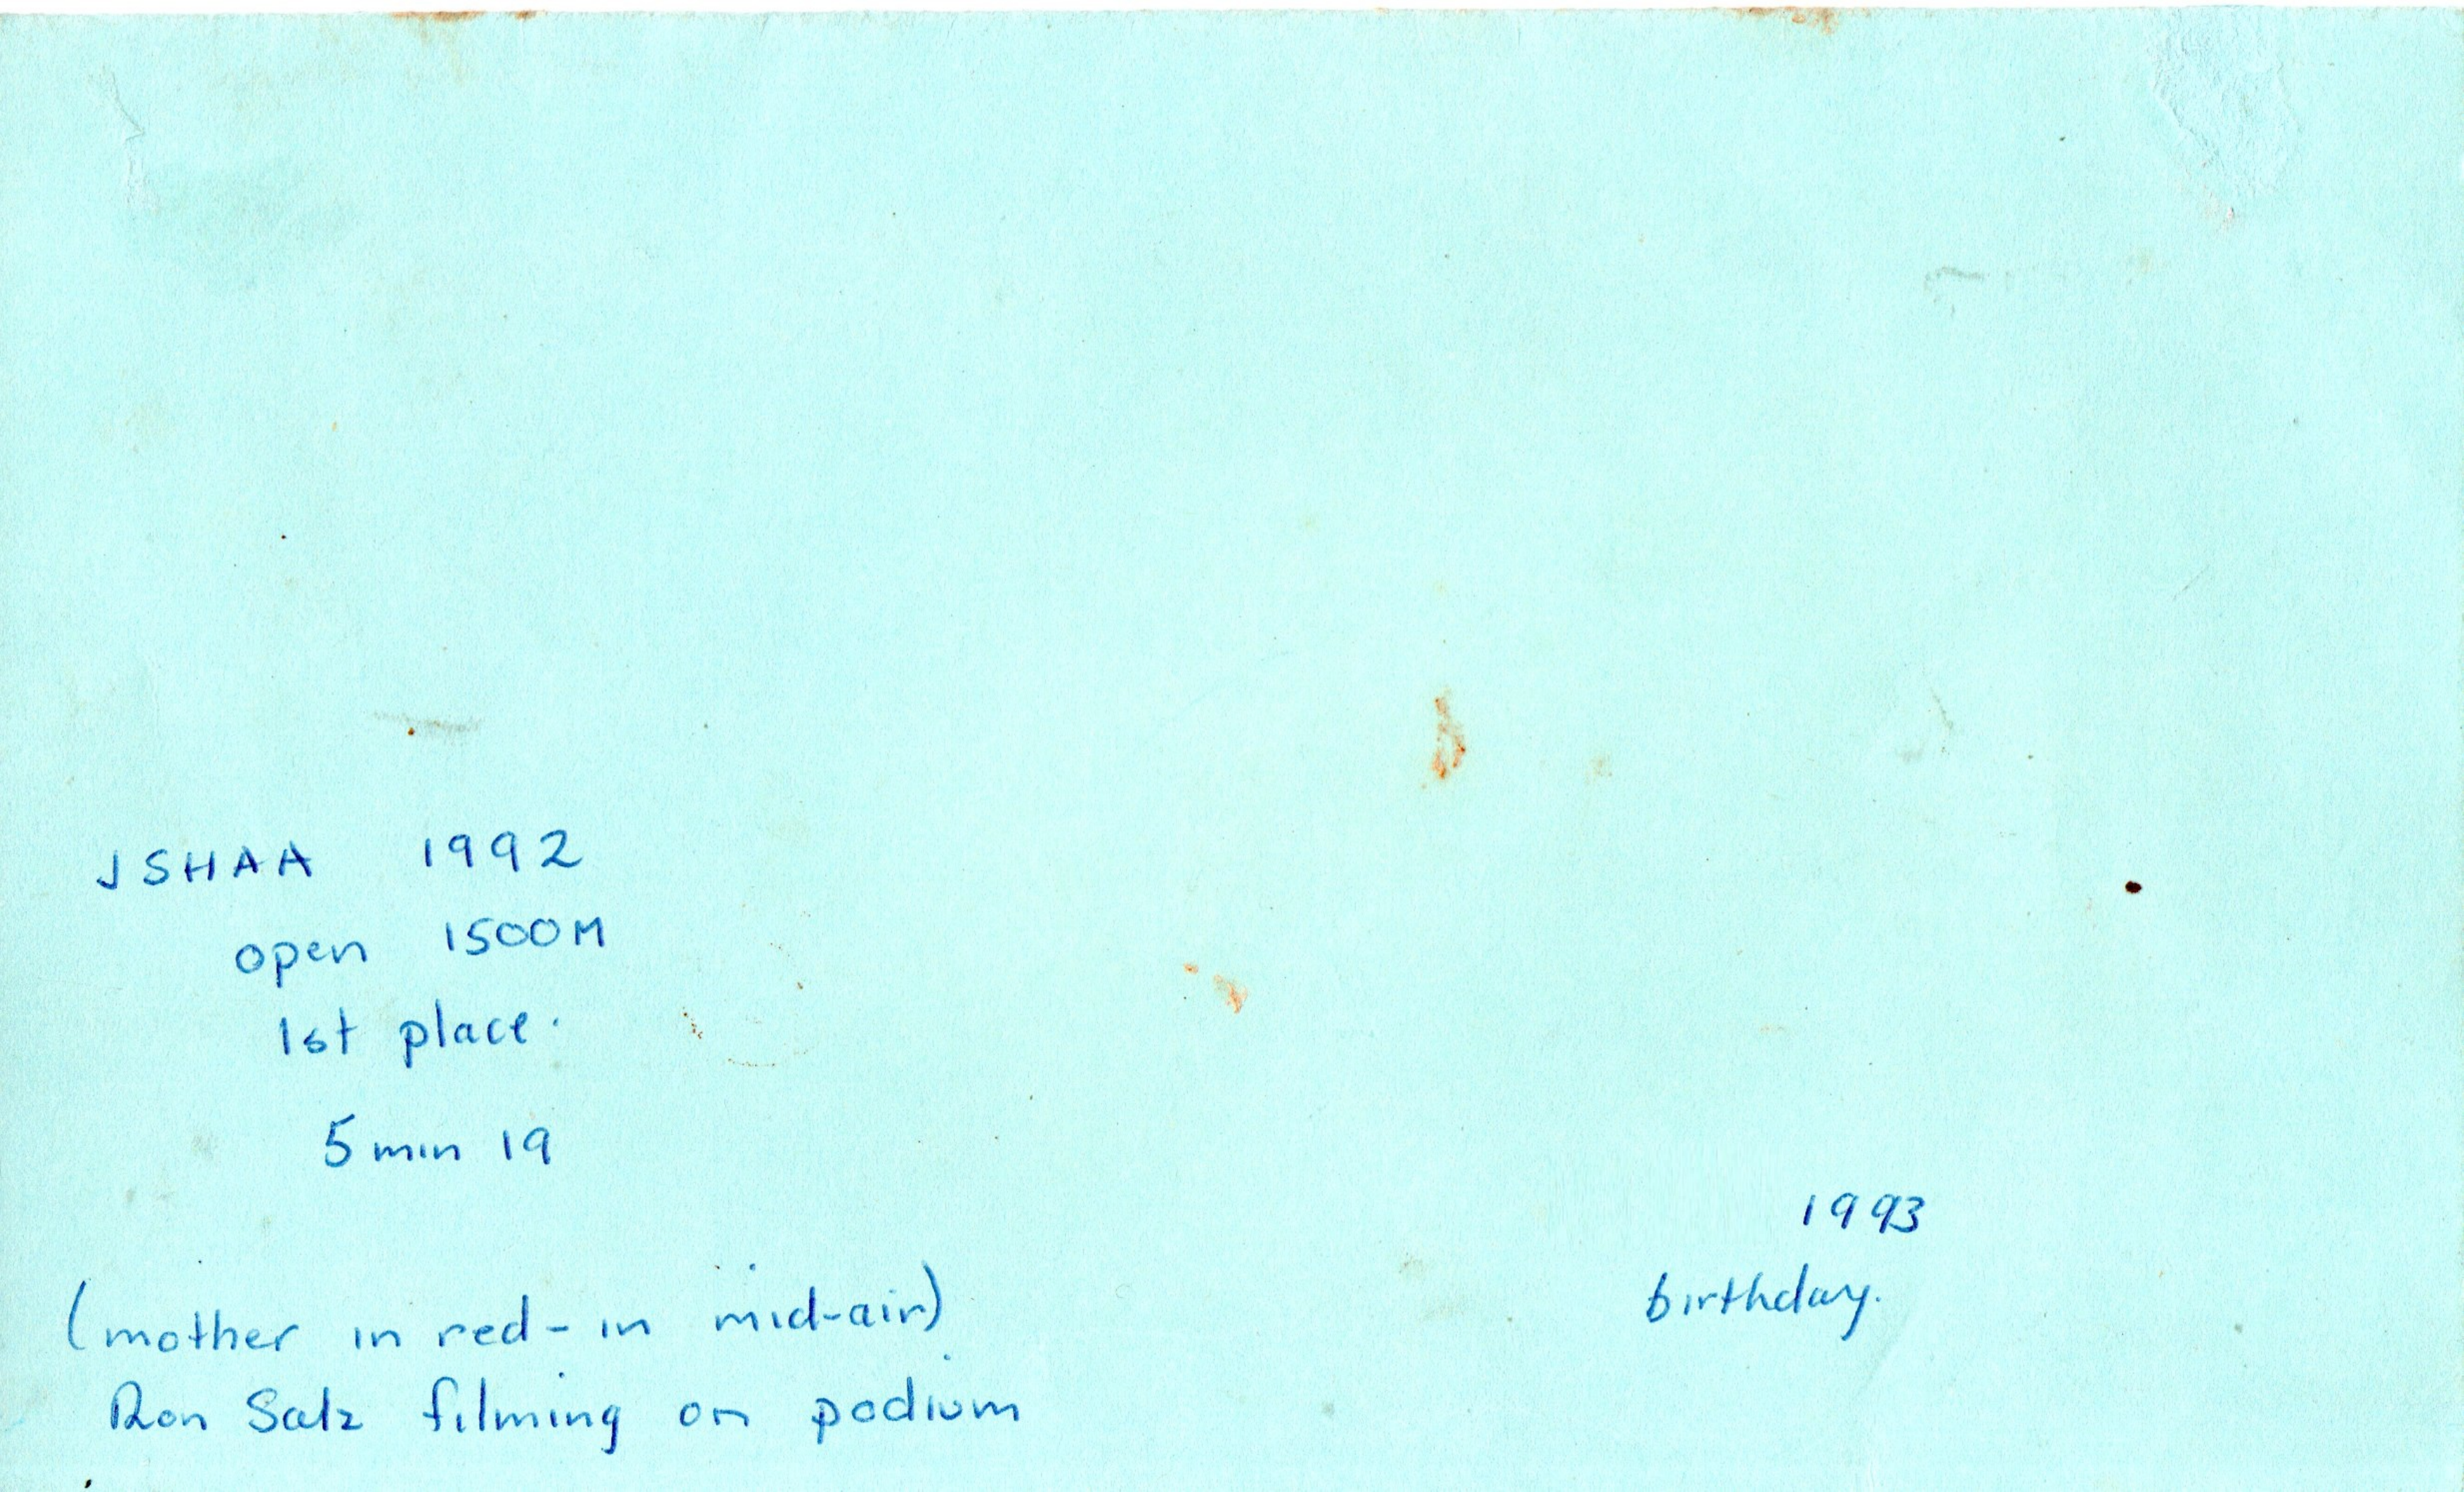 JSHAA 1992
open 1500M
1st place.
5 min 19
(mother in red - in mid-air)
Ron Salz filming on podium
1993
birthday.